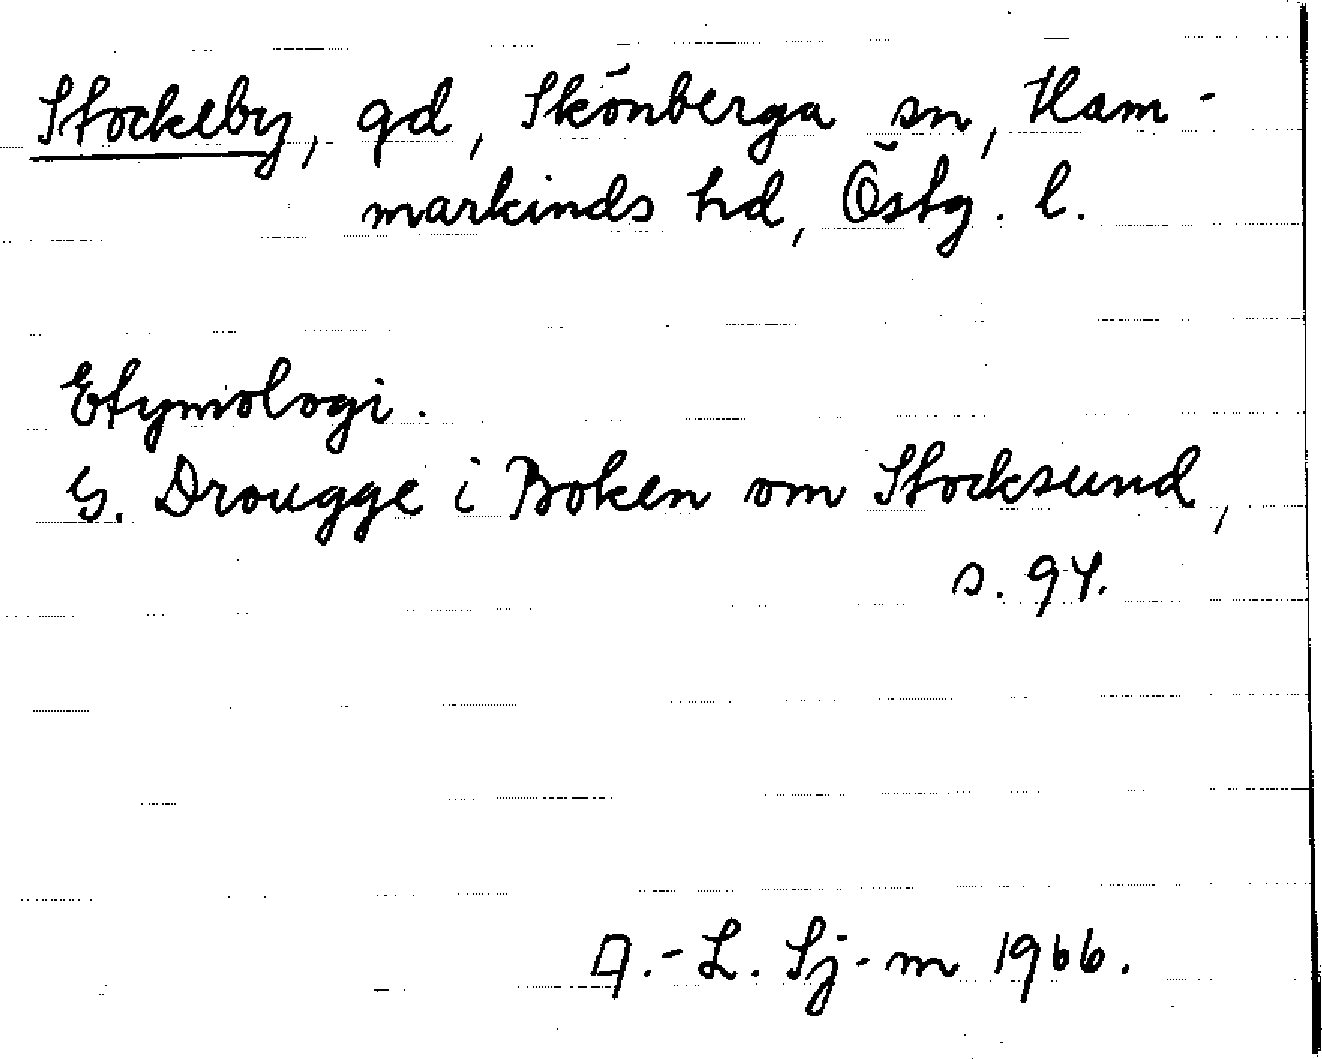 Stockeby, gd, Skönberga sn, Ham-
markinds hd, Östg. l.
Etymologi.
G. Drougge i Boken om Stocksund,
s. 94.
A.-L. Sj-m 1966.